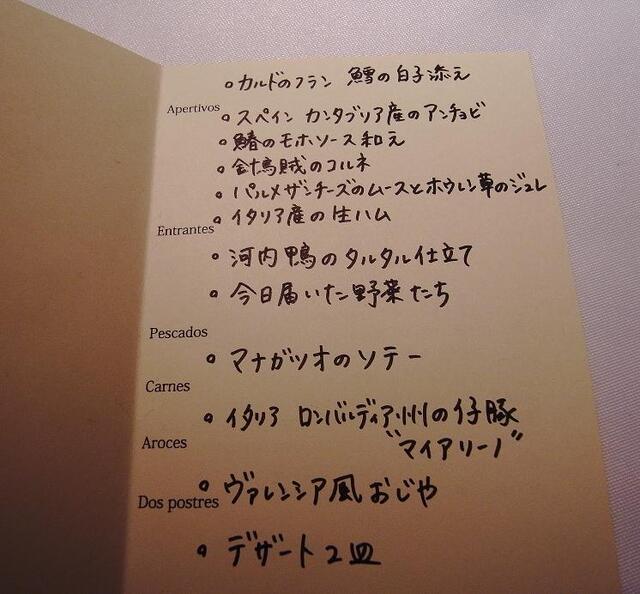 カルドのフラン 鱈の白子添え
Apertivos
スペイン カンタブリア産のアンチョビ
鰆のモホソース和え
針烏賊のコルネ
パルメザンチーズのムースとホウレン草のジュレ
イタリア産の生ハム
Entrantes
河内鴨のタルタル仕立て
今日届いた野菜たち
Pescados
マナガツオのソテー
Carnes
イタリア ロンバルディア州の仔豚
"マイアリーノ"
Aroces
ヴァレンシア風おじや
Dos postres
デザート2皿